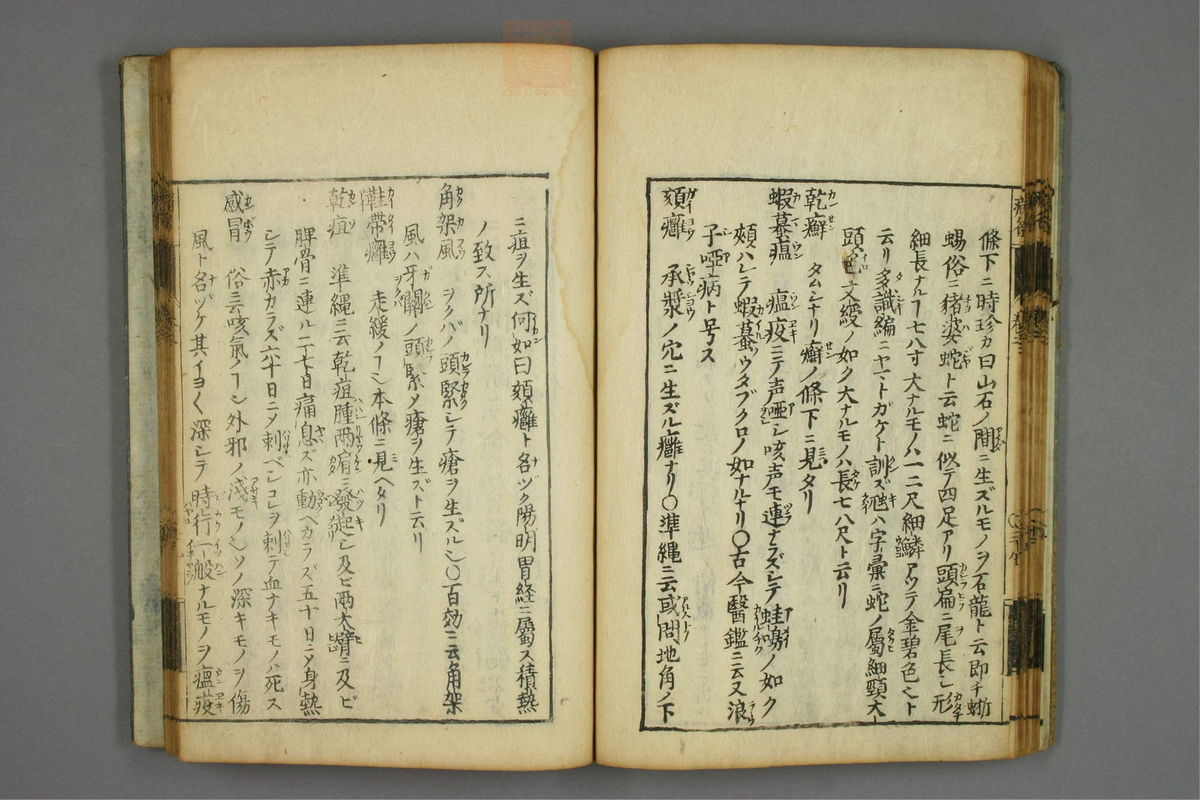 條下ニ時珍カ曰山石ノ間ニ生ズルモノヲ石龍ト云即チ蜥
蜴俗ニ猪婆蛇ト云蛇ニ似テ四足アリ頭扁ニ尾長シ形
細長ナルヿ七八寸大ナルモノハ一二尺細鱗アツテ金碧色ヘト
云リ多識編ニヤマトガケト訓ズ虺ハ字彙ニ蛇ノ屬細頸大
頭色文綬ノ如ク大ナルモノハ長七八尺ト云リ
乾癬 タムシナリ癬ノ條下ニ見タリ
蝦蟇瘟 瘟疫ニテ声啞シ咳声モ連ナラズシテ蛙鳴ノ如ク
頰ハレテ蝦蟇ウタブクロノ如ナルナリ〇古今醫鑑ニ云又浪
子啞病ト号ス
頦癰 承漿ノ穴ニ生ズル癰ナリ〇準繩ニ云或問地角ノ下
ニ疽ヲ生ズ何如曰頦癰ト名ヅク陽明胃経ニ屬ス積熱
ノ致ス所ナリ
角架風 ヲクバノ頭緊シテ瘡ヲ生ズルシ〇百効ニ云角架
風ハ牙關ノ頭緊メ瘡ヲ生ズト云リ
鞋帶癰 走緩ノヿシ本條ニ見ヘタリ
乾疽 準繩ニ云乾疽腫兩肩ニ發起シ及ビ兩大臂ニ及ビ
脾骨ニ連ル二七日痛息ズ亦動ヘカラズ五十日ニメ身熱
シテ赤カラズ六十日ニメ刺ベシコレヲ刺テ血ナキモノハ死ス
感冒 俗ニ云咳氣ノヿシ外邪ノ淺モノシソノ深キモノヲ傷
風ト名ヅケ其イヨ〱深シテ時行一般ナルモノヲ瘟疫